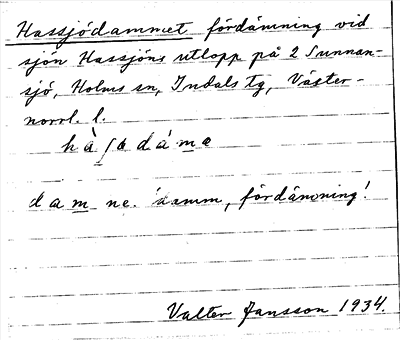 Hassjödammet fördämning vid
sjön Hassjöns utlopp på 2 Sunnan-
sjö, Holms sn, Indals tg, Väster-
norrl. l.
dam ne. 'damm, fördämning'
Valter Jansson 1934.